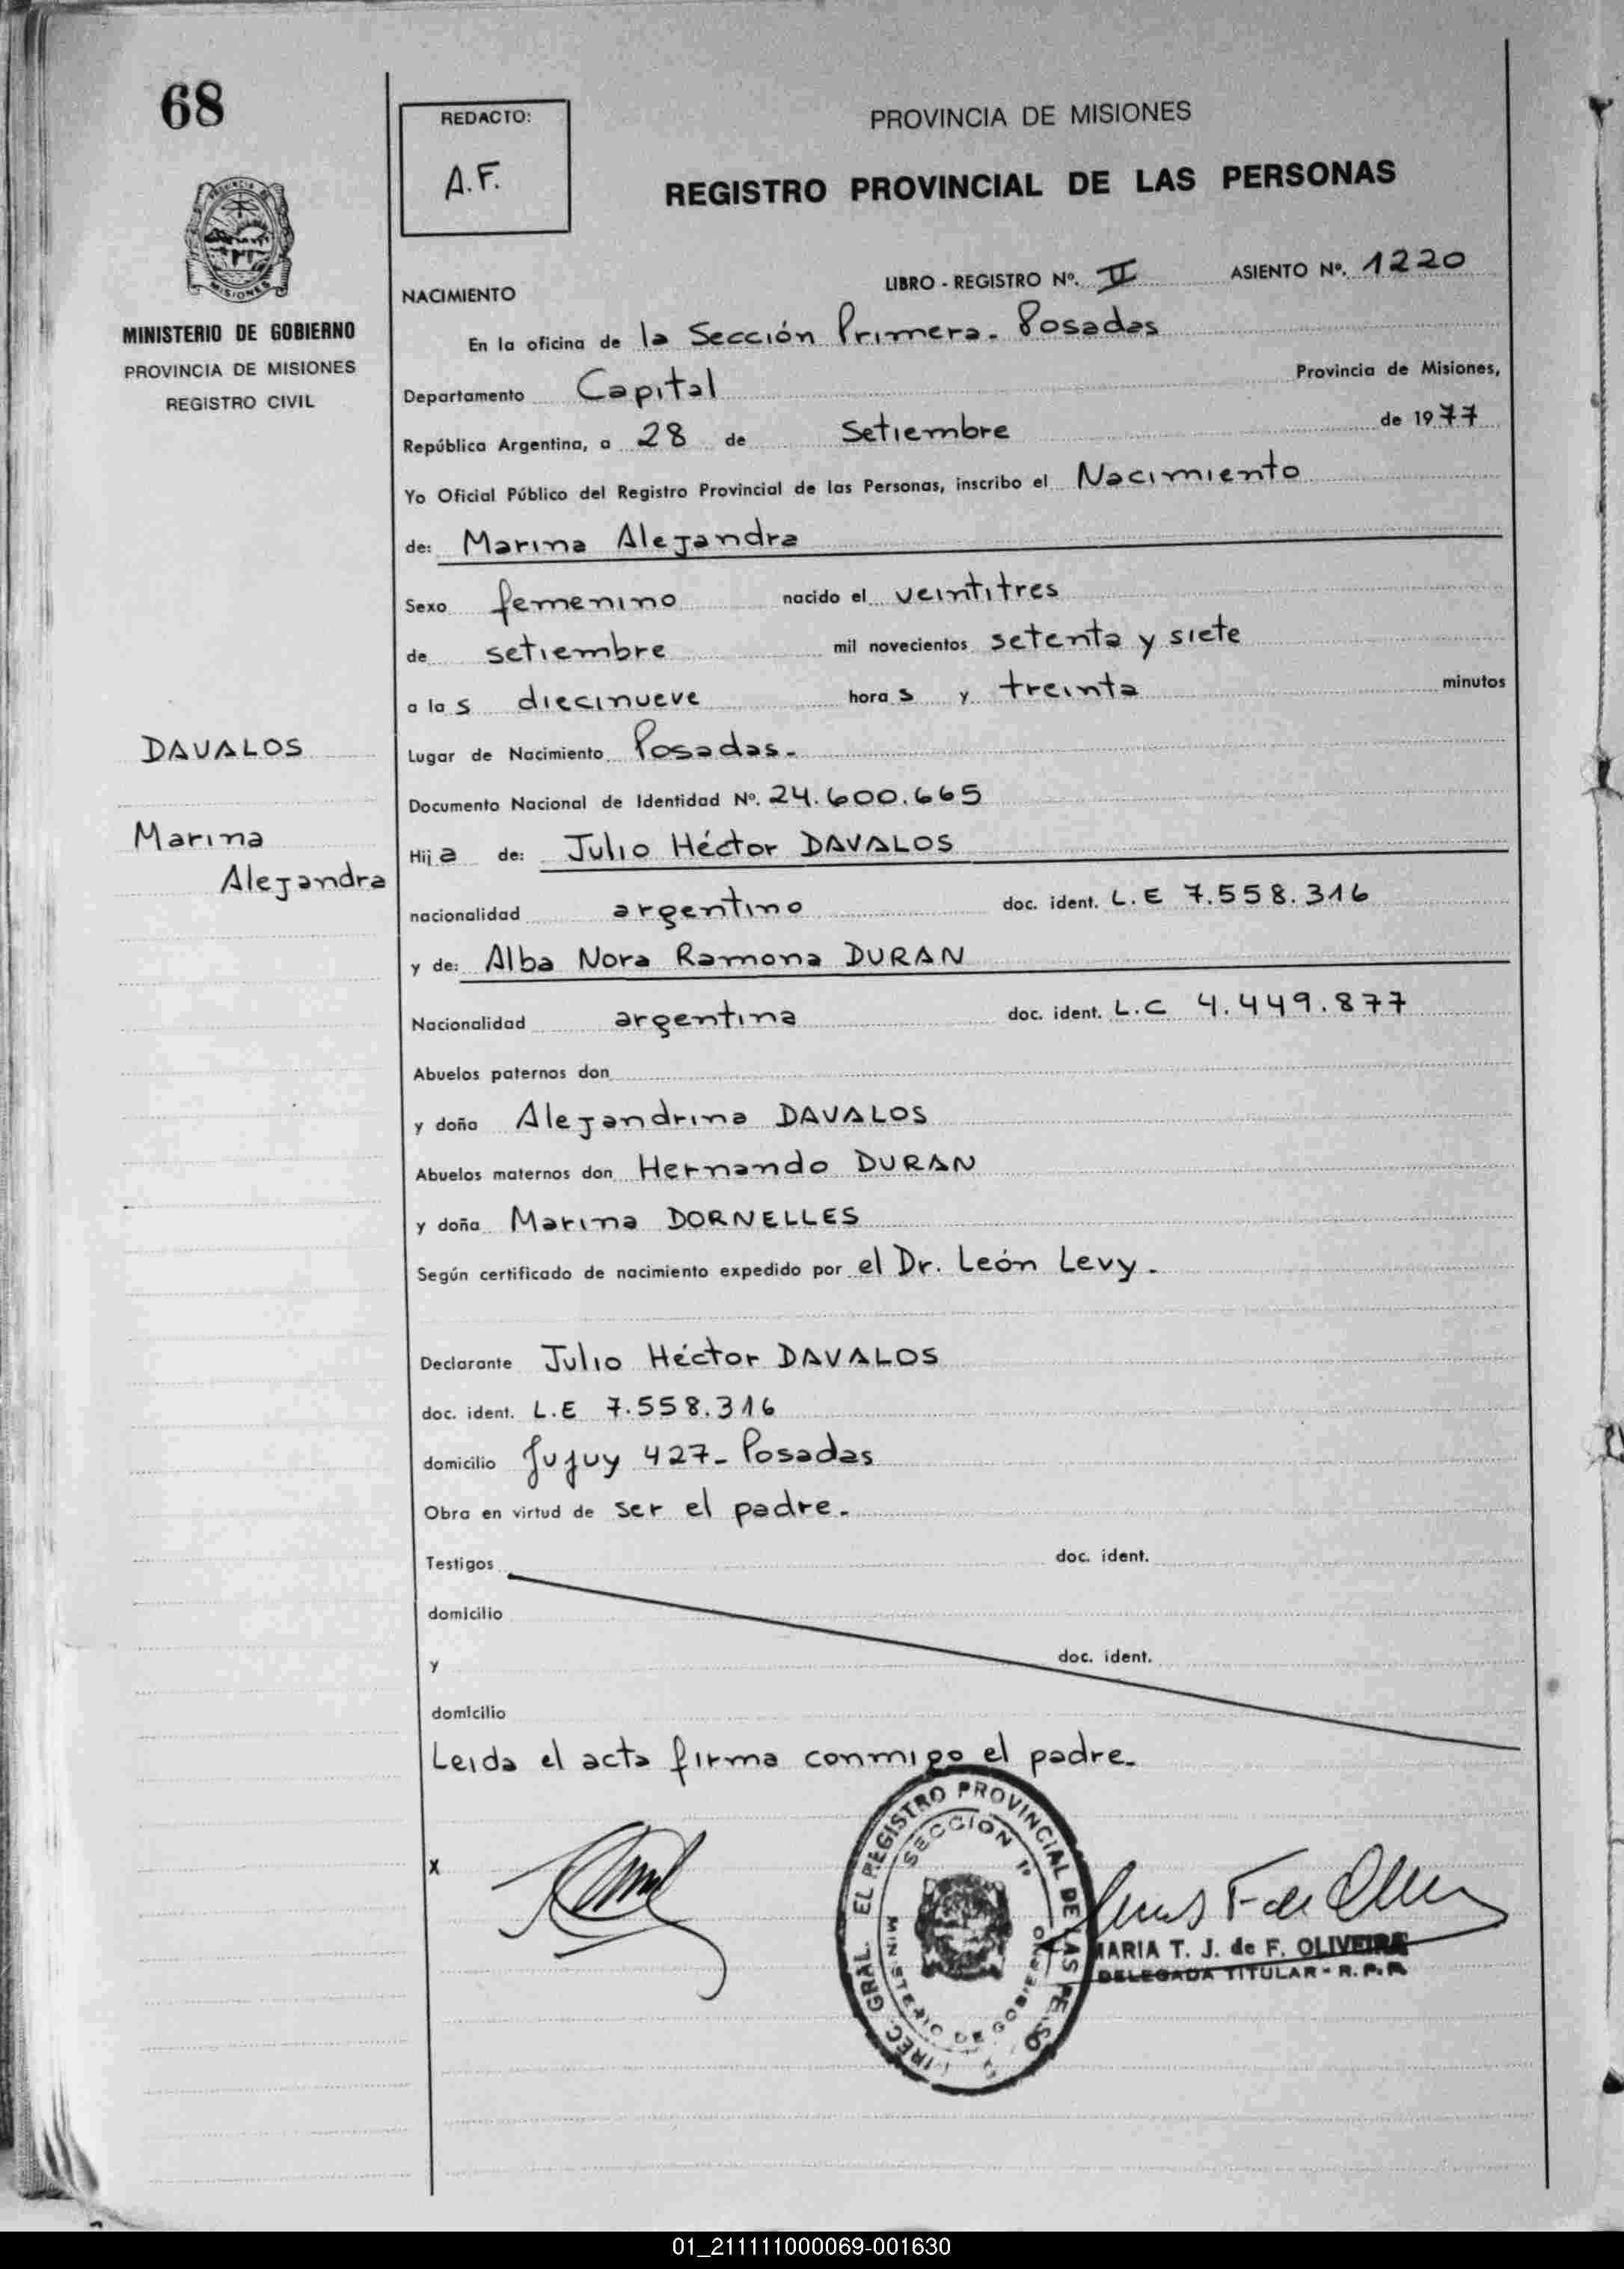 68
REDACTO:
A.F.
PROVINCIA DE MISIONES
REGISTRO PROVINCIAL DE LAS PERSONAS
MISIONES
MINISTERIO DE GOBIERNO
PROVINCIA DE MISIONES
REGISTRO CIVIL
NACIMIENTO
LIBRO - REGISTRO Nº. II ASIENTO Nº. 1220
En la oficina de la Sección Primera. Posadas
Departamento Capital Provincia de Misiones,
República Argentina, a 28 de Setiembre de 1977
Yo Oficial Público del Registro Provincial de las Personas, inscribo el Nacimiento
de: Marina Alejandra
Sexo femenino nacido el veintitres
de setiembre mil novecientos setenta y siete
a las diecinueve horas y treinta minutos
DAVALOS
Marina
Alejandra
Lugar de Nacimiento Posadas-
Documento Nacional de Identidad Nº. 24.600.665
Hija de: Julio Héctor DAVALOS
nacionalidad argentino doc. ident. L.E 7.558.316
y de: Alba Nora Ramona DURAN
Nacionalidad argentina doc. ident. L.C 4.449.877
Abuelos paternos don
y doña Alejandrina DAVALOS
Abuelos maternos don Hernando DURAN
y doña Marina DORNELLES
Según certificado de nacimiento expedido por el Dr. León Levy.
Declarante Julio Héctor DAVALOS
doc. ident. L.E 7.558.316
domicilio Jujuy 427- Posadas
Obra en virtud de ser el padre.
Testigos doc. ident.
domicilio
y doc. ident.
domicilio
Leida el acta firma conmigo el padre.
X
DIREC. GRAL. EL REGISTRO PROVINCIAL DE LAS PERSO
SECCION 1º
MINISTERIO DE GOBIERNO
MARIA T. J. de F. OLIVEIRA
DELEGADA TITULAR - R. P. P.
01_211111000069-001630